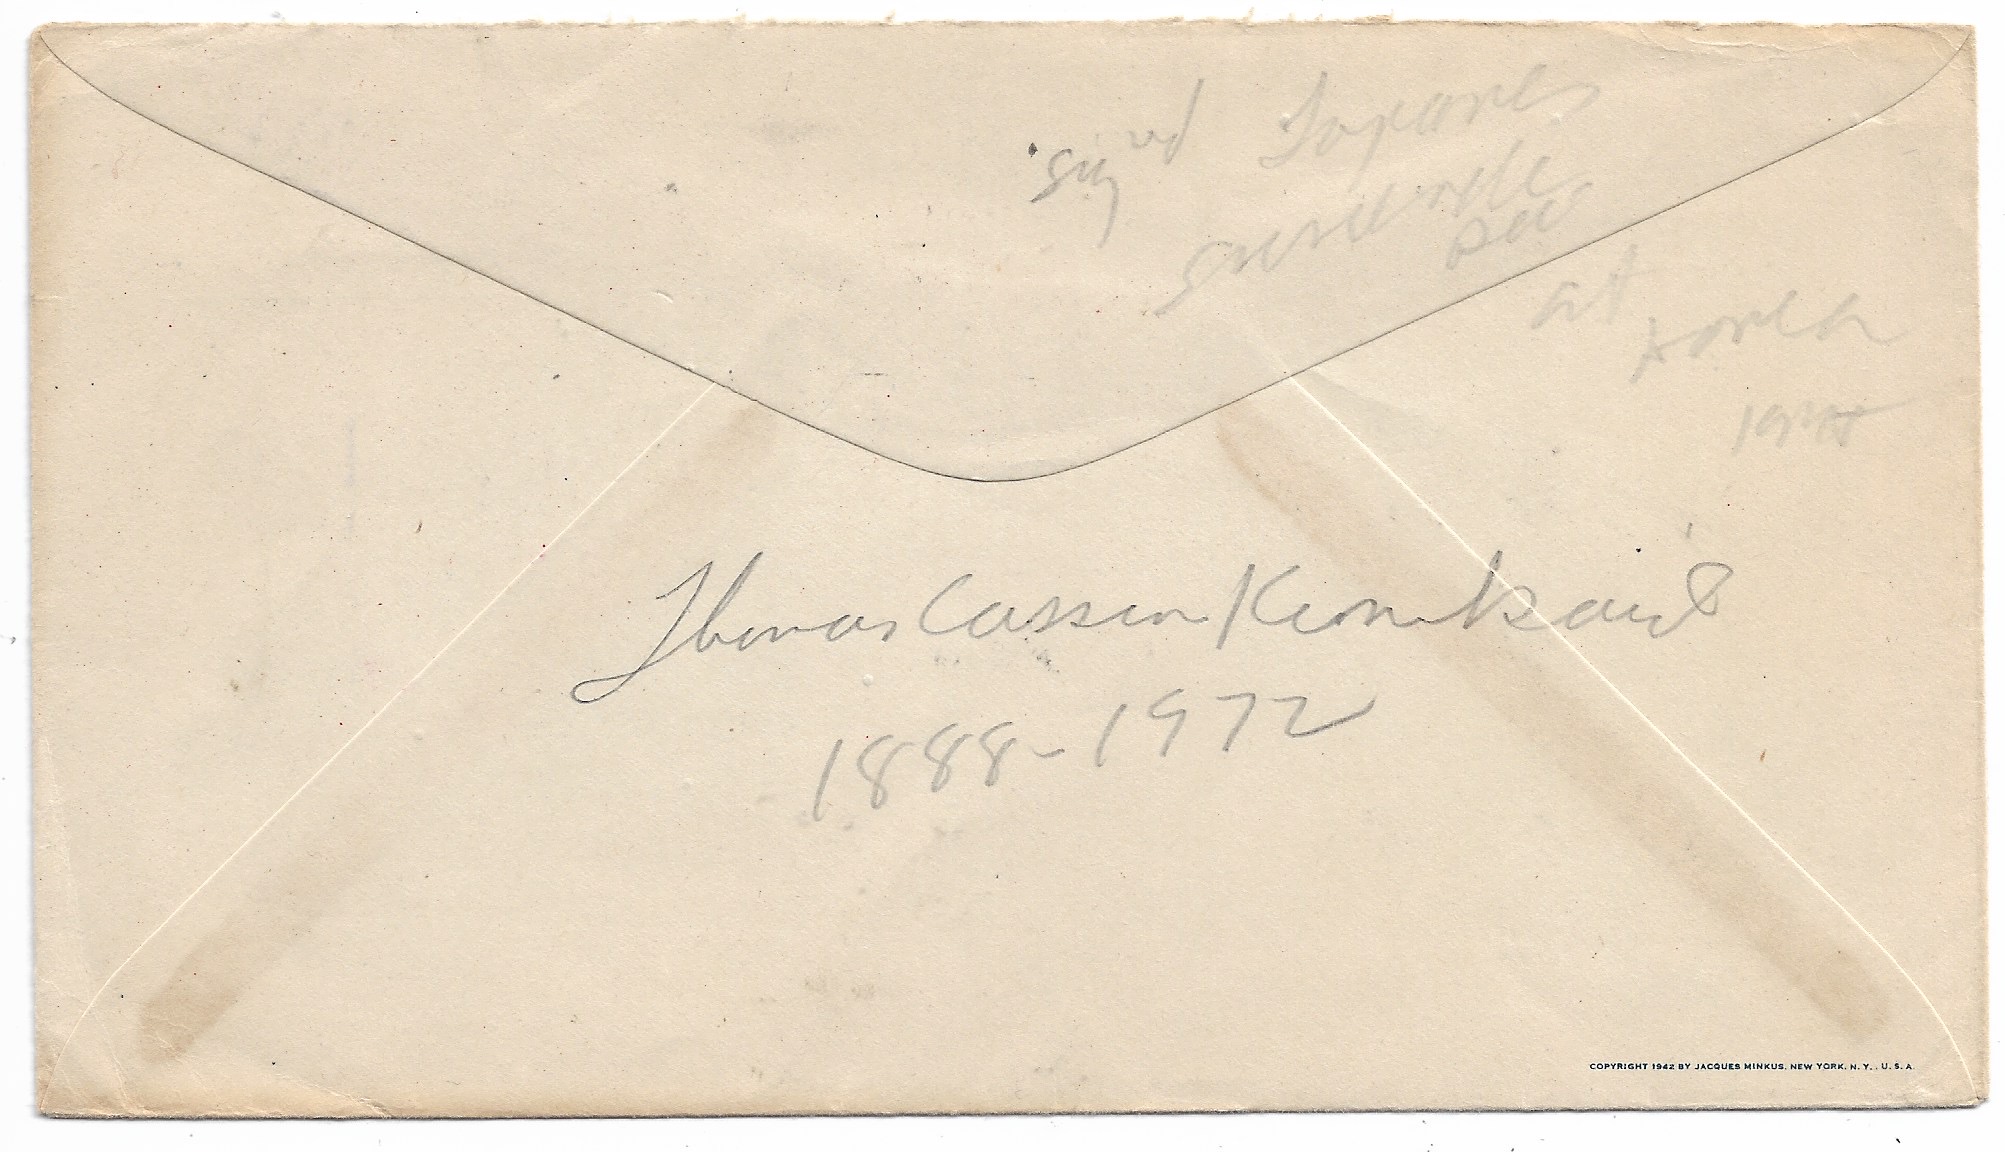 sigd Japanes
surrende
at Korea
Thomas Cassin Kinkaid
1888-1972
COPYRIGHT 1942 BY JACQUES MINKUS, NEW YORK, N. Y., U. S. A.